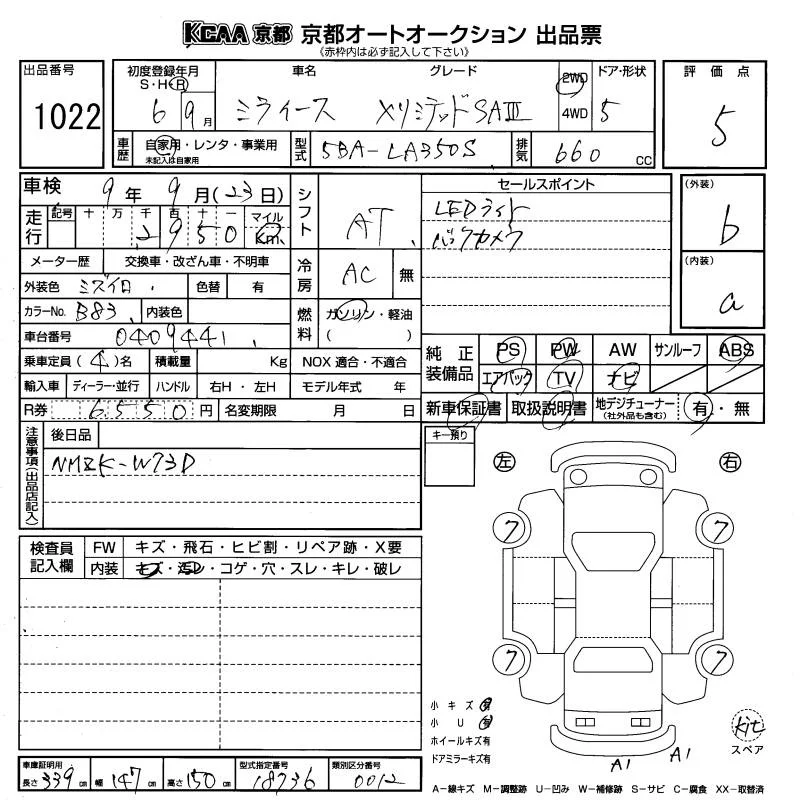 KCAA 京都 京都オートオークション 出品票
《赤枠内は必ず記入して下さい》
出品番号 1022
初度登録年月 S・H・R 6 9月
車名 ミライース
グレード Xリミテッド SAⅢ
2WD 4WD
ドア・形状 5
評価点 5
車歴 自家用・レンタ・事業用 未記入は自家用
型式 5BA-LA350S
排気 660 CC
車検 9年 9月(23日)
走行 記号 十 万 千 百 十 一 マイル Km
2950
シフト AT
セールスポイント
LEDライト
バックカメラ
(外装) b
(内装) a
メーター歴 交換車・改ざん車・不明車
冷房 AC 無
外装色 ミズイロ 色替 有
カラーNo. B83 内装色
燃料 ガソリン・軽油 ( )
車台番号 0409441
乗車定員 (4)名 積載量 Kg NOX 適合・不適合
輸入車 ディーラー・並行 ハンドル 右H・左H モデル年式 年
R券 6550円 名変期限 月 日
純正装備品 PS PW AW サンルーフ ABS
エアバック TV ナビ
新車保証書 取扱説明書 地デジチューナー (社外品も含む) 有・無
注意事項(出品店記入) 後日品
NMZK-W73D
キー預り
左 右
7 7
7 7
検査員記入欄 FW キズ・飛石・ヒビ割・リペア跡・X要
内装 キズ・汚レ・コゲ・穴・スレ・キレ・破レ
小キズ有
小U有
ホイールキズ有
ドアミラーキズ有
A1 A1
kit
スペア
車庫証明用 長さ 339cm 幅 147cm 高さ 150cm 型式指定番号 18736 類別区分番号 0012
A−線キズ M−調整跡 U−凹み W−補修跡 S−サビ C−腐食 XX−取替済